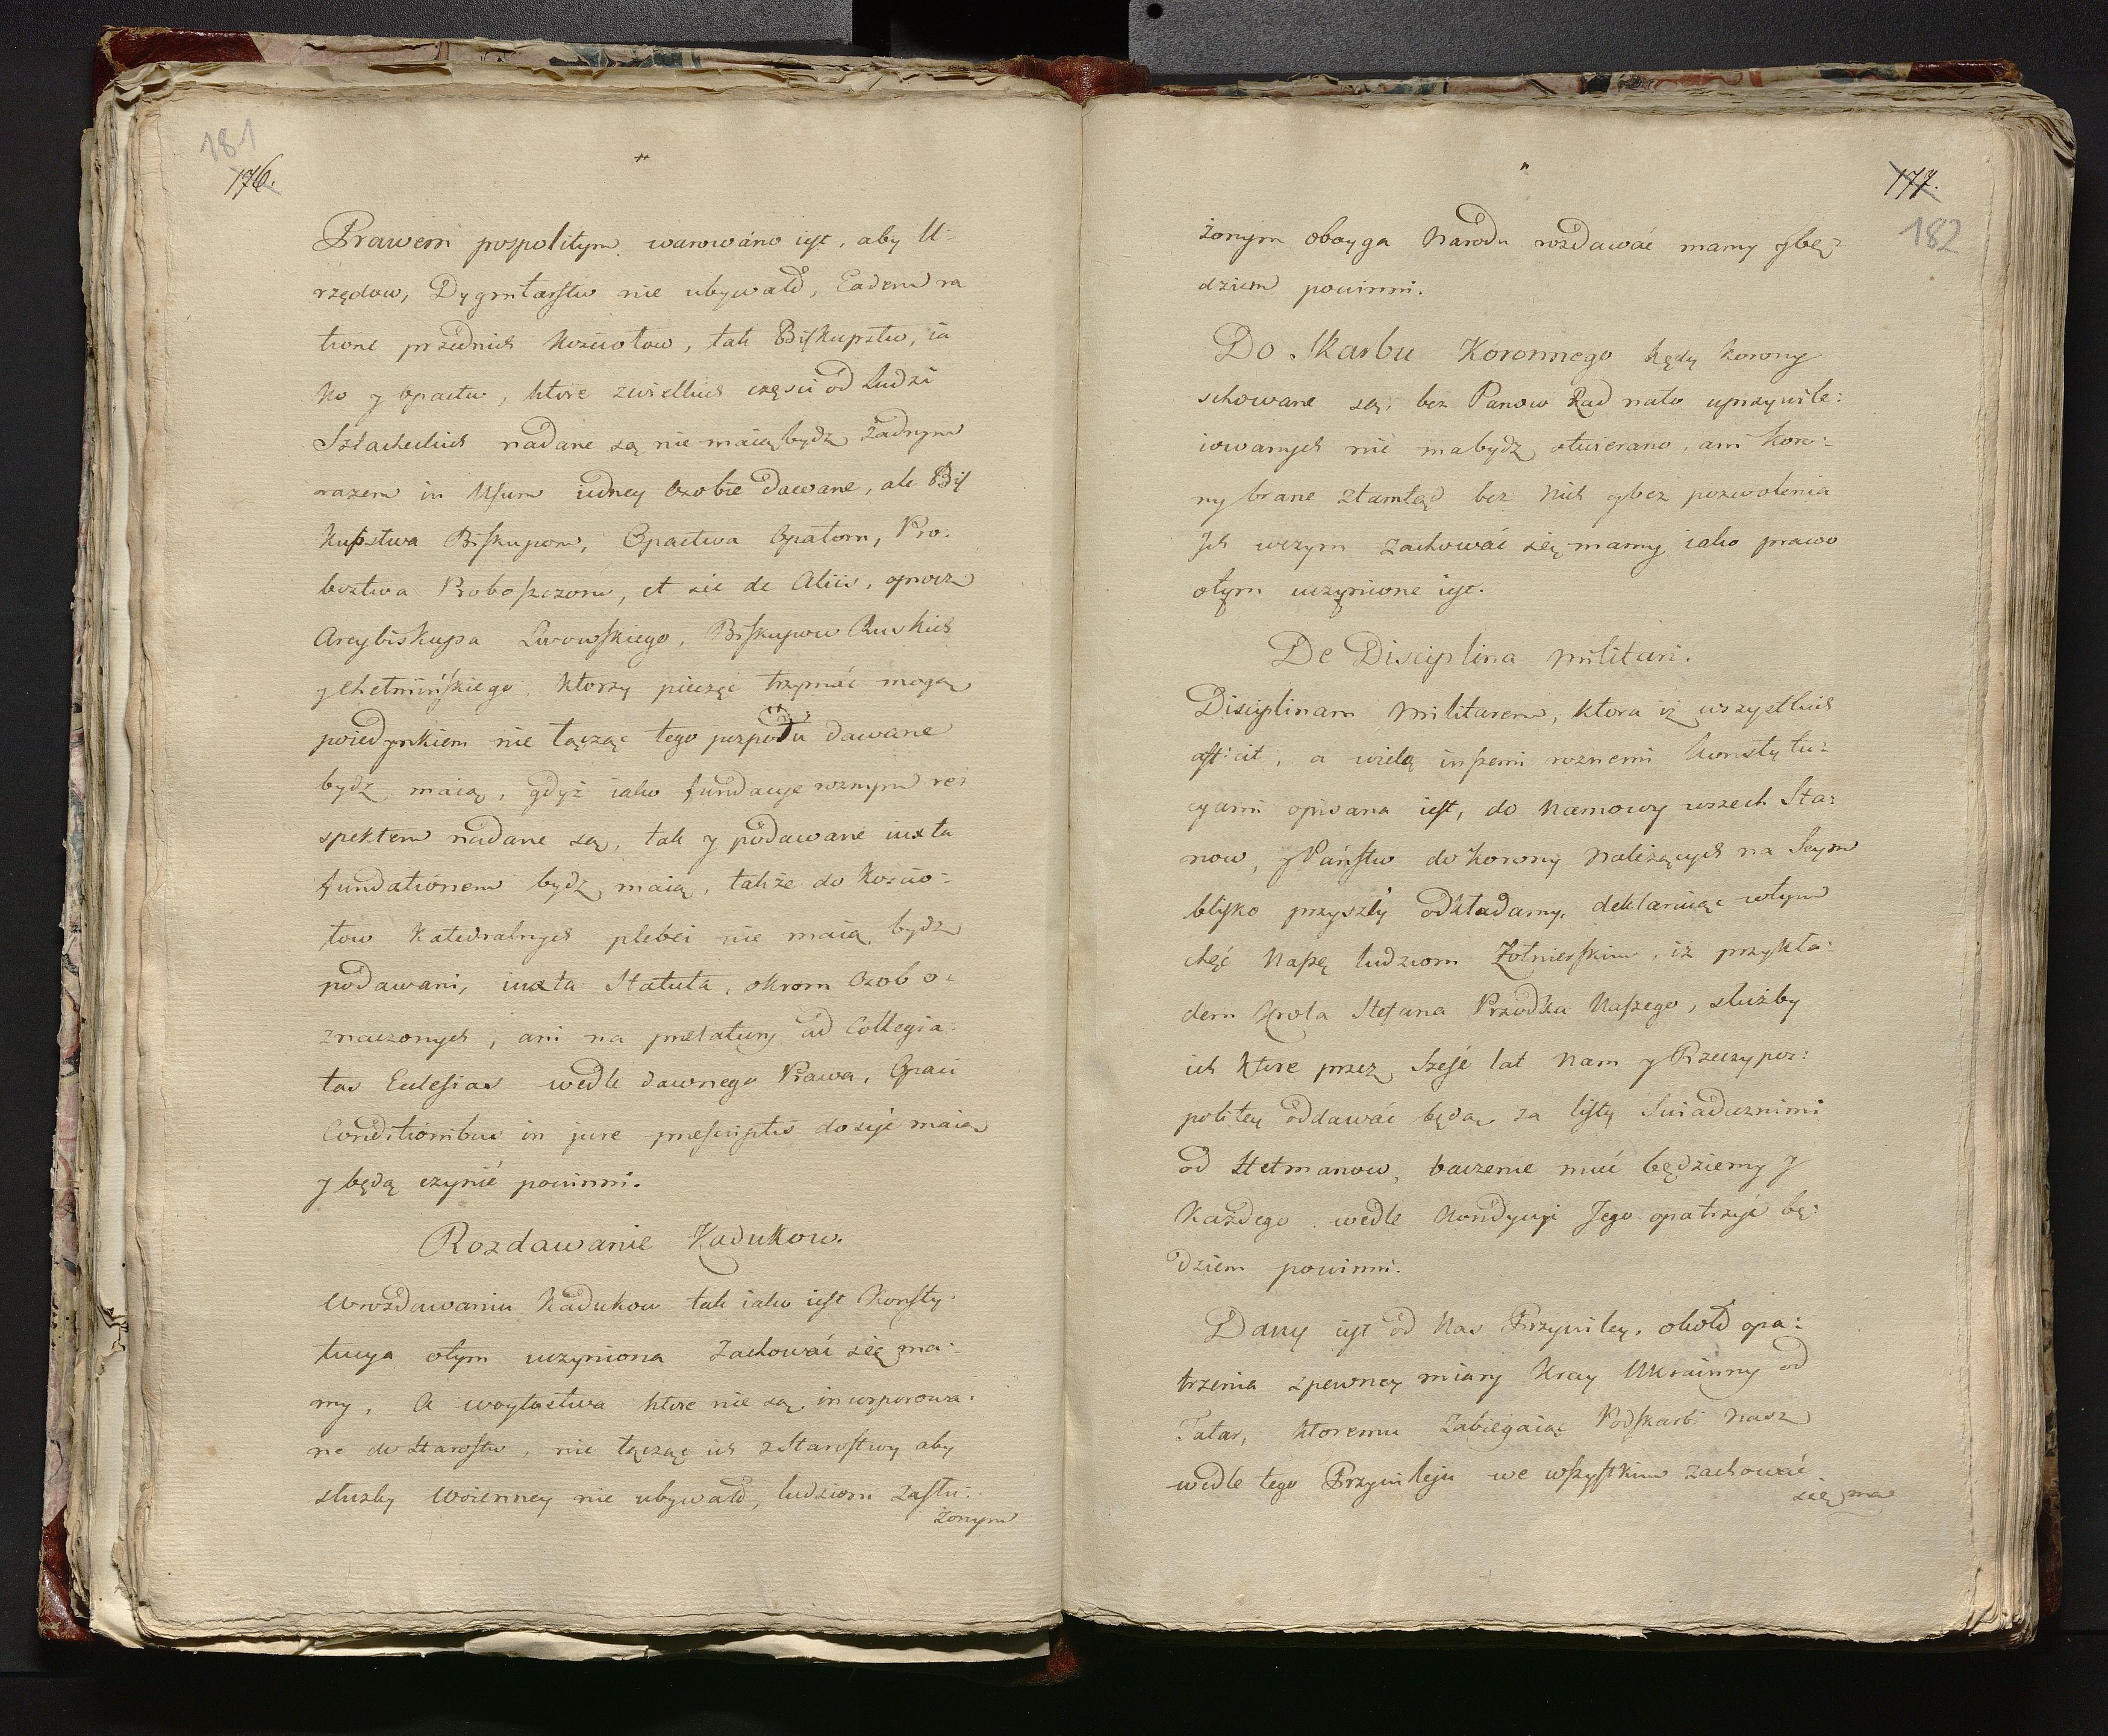 181
176.
Prawem pospolitym warowano iest, aby U=
rzędow, Dygnitarstw nie ubywało, Eadem ra
tione przednich Kosciołow, tak Biskupstw, ia
ko y Opactw, ktore zwielkich częsci od Ludzi
Szlacheckich nadane są nie maią bydz żadnym
razem in Usum iedney Osobie dawane, ale Bis
kupstwa Biskupom, Opactwa Opatom, Pro=
bostwa Proboszczom, et sic de Aliis, oprocz
Arcybiskupa Lwowskiego, Biskupow Ruskich
y Chełmińskiego, Ktorzy pieczęć trzymać mogą
poiedynkiem nie łącząc tego pospołu dawane
bydz maią, gdyż iako fundacye roznym re=
spektem nadane są, tak y podawane iuxta
fundationem bydz maią, także do Koscio=
łow Katedralnych plebei nie maią bydz
podawani, iuxta Statuta, okrom Osob o=
znaczonych, ani na prelatury ad Collegia=
tas Eclesias wedle dawnego Prawa, Opaci
Conditionibus in jure prescriptis dosyć maią
y będą czynić powinni.
Rozdawanie Kadukow.
Wrozdawaniu Kadukow tak iako iest Konsty=
tucya otym uczyniona Zachować się ma=
my, A woytostwa ktore nie są inkorporowa=
ne do Starostw, nie łącząc ich z Starostwy aby
służby Woienney nie ubywało, ludziom Zasłu=
żonym
177.
182
żonym oboyga Narodu rozdawać mamy y bę=
dziem powinni.
Do Skarbu Koronnego kędy korony
schowane są, bez Panow Rad nato uprzywile=
iowanych nie ma bydz otwierano, ani koro=
ny brane ztamtąd bez Nich y bez pozwolenia
Ich wczym Zachować się mamy iako prawo
otym uczynione iest.
De Disciplina Militari.
Disciplinam Militarem, ktora iż wszystkich
afficit, a wielą inszemi roznemi Konstytu=
cyami opisana iest, do Namowy wszech Sta=
now, y Państw do Korony Należących na Seym
blisko przyszły odkładamy, deklaruiąc wtym
chęć Naszę ludziom Zołnierskim, iż przykła=
dem Krola Stefana Przodka Naszego, służby
ich ktore przez Szesć lat Nam y Rzeczypos=
politey oddawać będą za listy Swiadecznimi
od Hetmanow, baczenie mieć będziemy y
Każdego wedle Kondycyi Jego opatrzyć bę=
dziem powinni.
Dany iest od Nas Przywiley, około opa=
trzenia z pewney miary Kray Ukrainny od
Tatar, ktoremu Zabiegaiąc Podskarbi Nasz
wedle tego Przywileju we wszystkim zachować
się ma